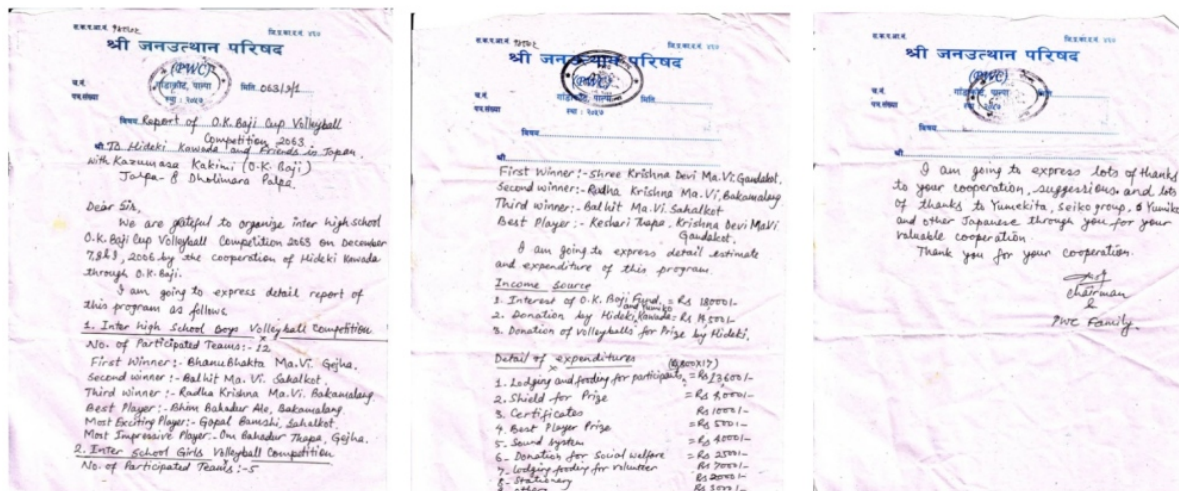 श्री जनउत्थान परिषद
(PWC)
गाँडाकोट, पाल्पा
मिति 063/9/1
विषय Report of O.K. Baji Cup Volleyball
Competition 2063
श्री To Hideki Kawada and Friends in Japan
with Kazumasa Kakimi (O.K. Baji)
Dholimara Palpa.
Dear Sir,
We are grateful to organize inter high school
O.K. Baji Cup Volleyball Competition 2063 on December
7,8&9, 2006 by the cooperation of Hideki Kawada
through O.K. Baji.
I am going to express detail report of
this program as follows
1. Inter High School Boys Volleyball Competition
No. of Participated Teams:-12
First Winner:- Bhanu Bhakta Ma.Vi. Gejha.
Second winner:- Balhit Ma. Vi. Sahalkot.
Third winner:- Radha Krishna Ma.Vi. Bakamalang.
Best Player:- Bhim Bahadur Ale, Bakamalang.
Most Exciting Player:- Gopal Sahalkot.
Most Impressive Player:- Om Bahadur Thapa, Gejha.
2. Inter School Girls Volleyball Competition
No. of Participated Teams:-5
श्री जनउत्थान परिषद
(PWC)
गाँडाकोट, पाल्पा
मिति
विषय
श्री
First Winner:- Shree Krishna Devi Ma.Vi. Gandakot.
Second winner:- Radha Krishna Ma.Vi, Bakamalang
Third winner:- Balhit Ma.Vi. Sahalkot
Best Player:- Keshari Thapa, Krishna Devi MaVi
Gandakot.
I am going to express detail estimate
and expenditure of this program.
Income Source
1. Interest of O.K. Baji Fund = Rs 18000/-
and Yumiko
2. Donation by Hideki Kawada = Rs
3. Donation of volleyballs for Prize by Hideki.
Detail of expenditures
1. Lodging and fooding for participants = Rs 13600/-
2. Shield for Prize
3. Certificates Rs 1000/-
4. Best Player Prize = Rs 500/-
5. Sound system = Rs 4000/-
6- Donation for Social welfare = Rs 2500/-
7- Lodging fooding for volunteer Rs 7000/-
8- Stationary Rs 2000/-
श्री जनउत्थान परिषद
(PWC)
मिति
विषय
श्री
I am going to express lots of thanks
to your cooperation, suggessions and lots
of thanks to Yumekita, Seiko group, Yumiko
and other Japanese through you for your
valuable cooperation.
Thank you for your cooperation.
Chairman
&
PWC Family.